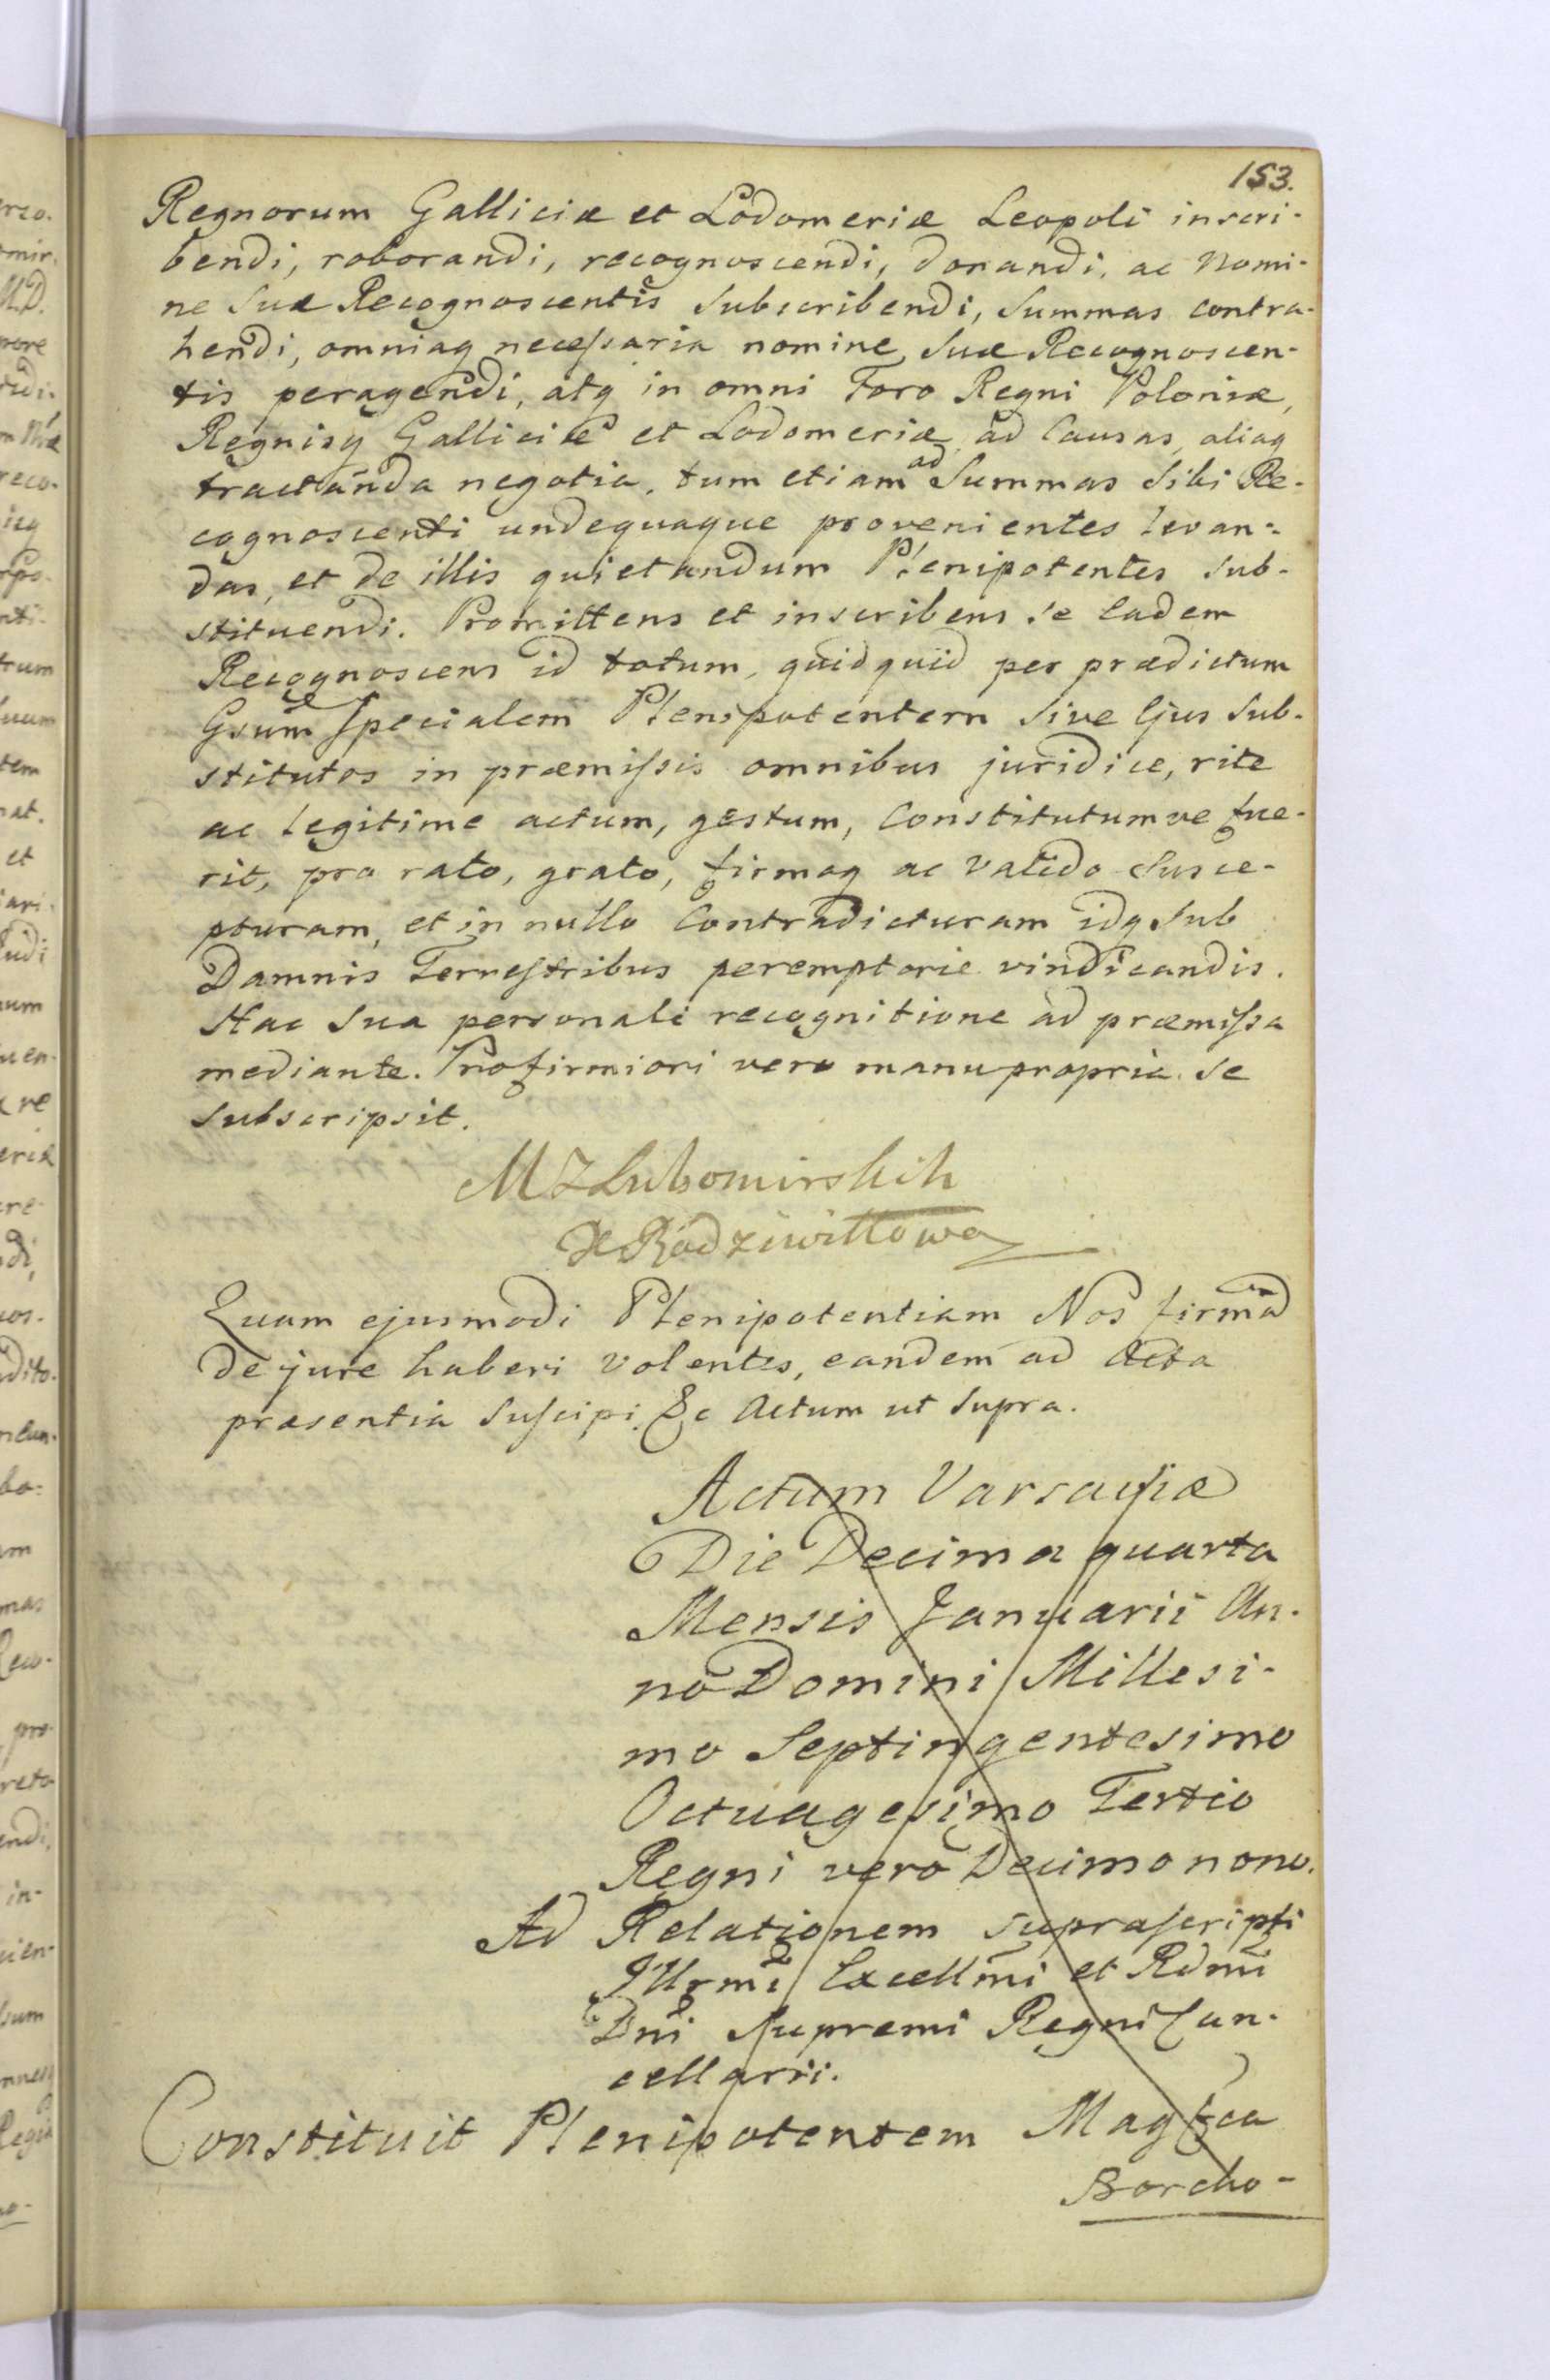 153.
Regnorum Galliciæ et Lodomeriæ Leopoli inscri-
bendi, roborandi, recognoscendi, donandi, ac Nomi-
ne Suæ Recognoscentis Subscribendi, Summas contra-
hendi, omniaq necessaria nomine Suæ Recognoscen-
tis peragendi, atq in omni Foro Regni Poloniæ,
Regnisq Galliciæ et Lodomeriæ ad Causas, aliaq
tractanda negotia, tum etiam ad Summas Sibi Re-
cognoscenti undequaque provenientes levan-
das, et de illis quietandum Plenipotentes Sub-
stituendi. Promittens et inscribens Se Eadem
Recognoscens id totum, quidquid per prædictum
Gsum Specialem Plenipotentem Sive Ejus Sub-
stitutos in præmissis omnibus juridice, rite
ac legitime actum, gestum, Constitutumve fue-
rit, pro rato, grato, firmoq ac valido Susce-
pturam, et in nullo Contradicturam idq Sub
Damnis Terrestribus peremptorie vindicandis.
Hac Sua personali recognitione ad præmissa
mediante. Pro firmiori vero manu propria Se
Subscripsit.
M Z Lubomirskich
X Radziwiłłowa
Quam ejusmodi Plenipotentiam Nos firmã
de jure haberi volentes, eandem ad Acta
præsentia Suscipi &c Actum ut Supra.
Actum Varsaviæ
Die Decima quarta
Mensis Januarii An-
no Domini Millesi-
mo Septingentesimo
Octuagesimo Tertio
Regni vero Decimo nono.
Ad Relationem suprascripti
Illrmi Excellmi et Rdmi
Dni Supremi Regni Can-
cellarii.
Constituit Plenipotentem Magfca
Borcho-